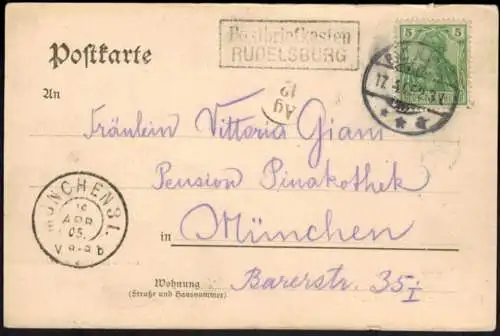 Postkarte
Postbriefkasten
RUDELSBURG
5
17.
Ag
12
An
Fräulein Vittoria Giani
Pension Pinakothek
in München
Barerstr. 35 I
Wohnung
(Straße und Hausnummer)
MÜNCHEN 31.
APR
05.
V 8-9 b